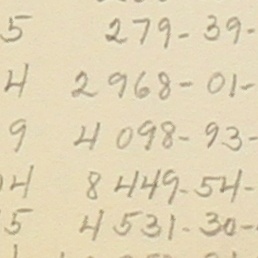 5 279-39-
4 2968-01-
9 4098-93-
4 8449-54-
5 4531-30-